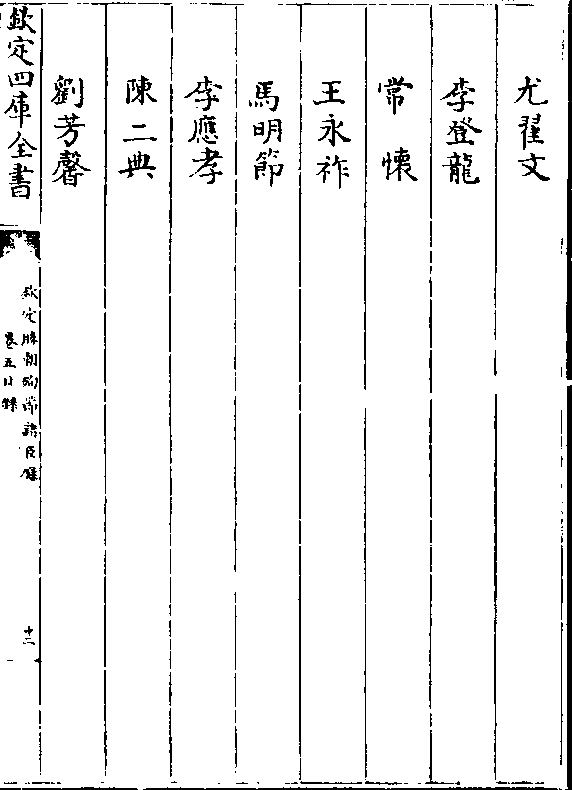 尤翟文
李登龍
常懷
王永祚
馬明節
李應孝
陳二典
劉芳馨
欽定四庫全書
欽定勝朝殉節諸臣録
卷五目録
十二